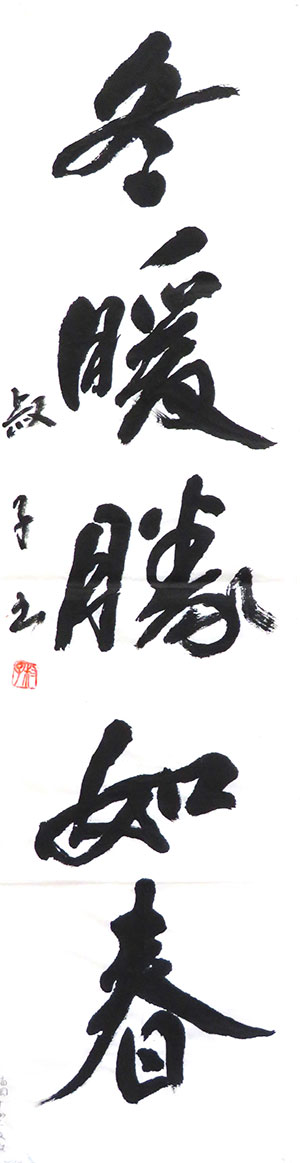 冬暖勝如春
叔子书